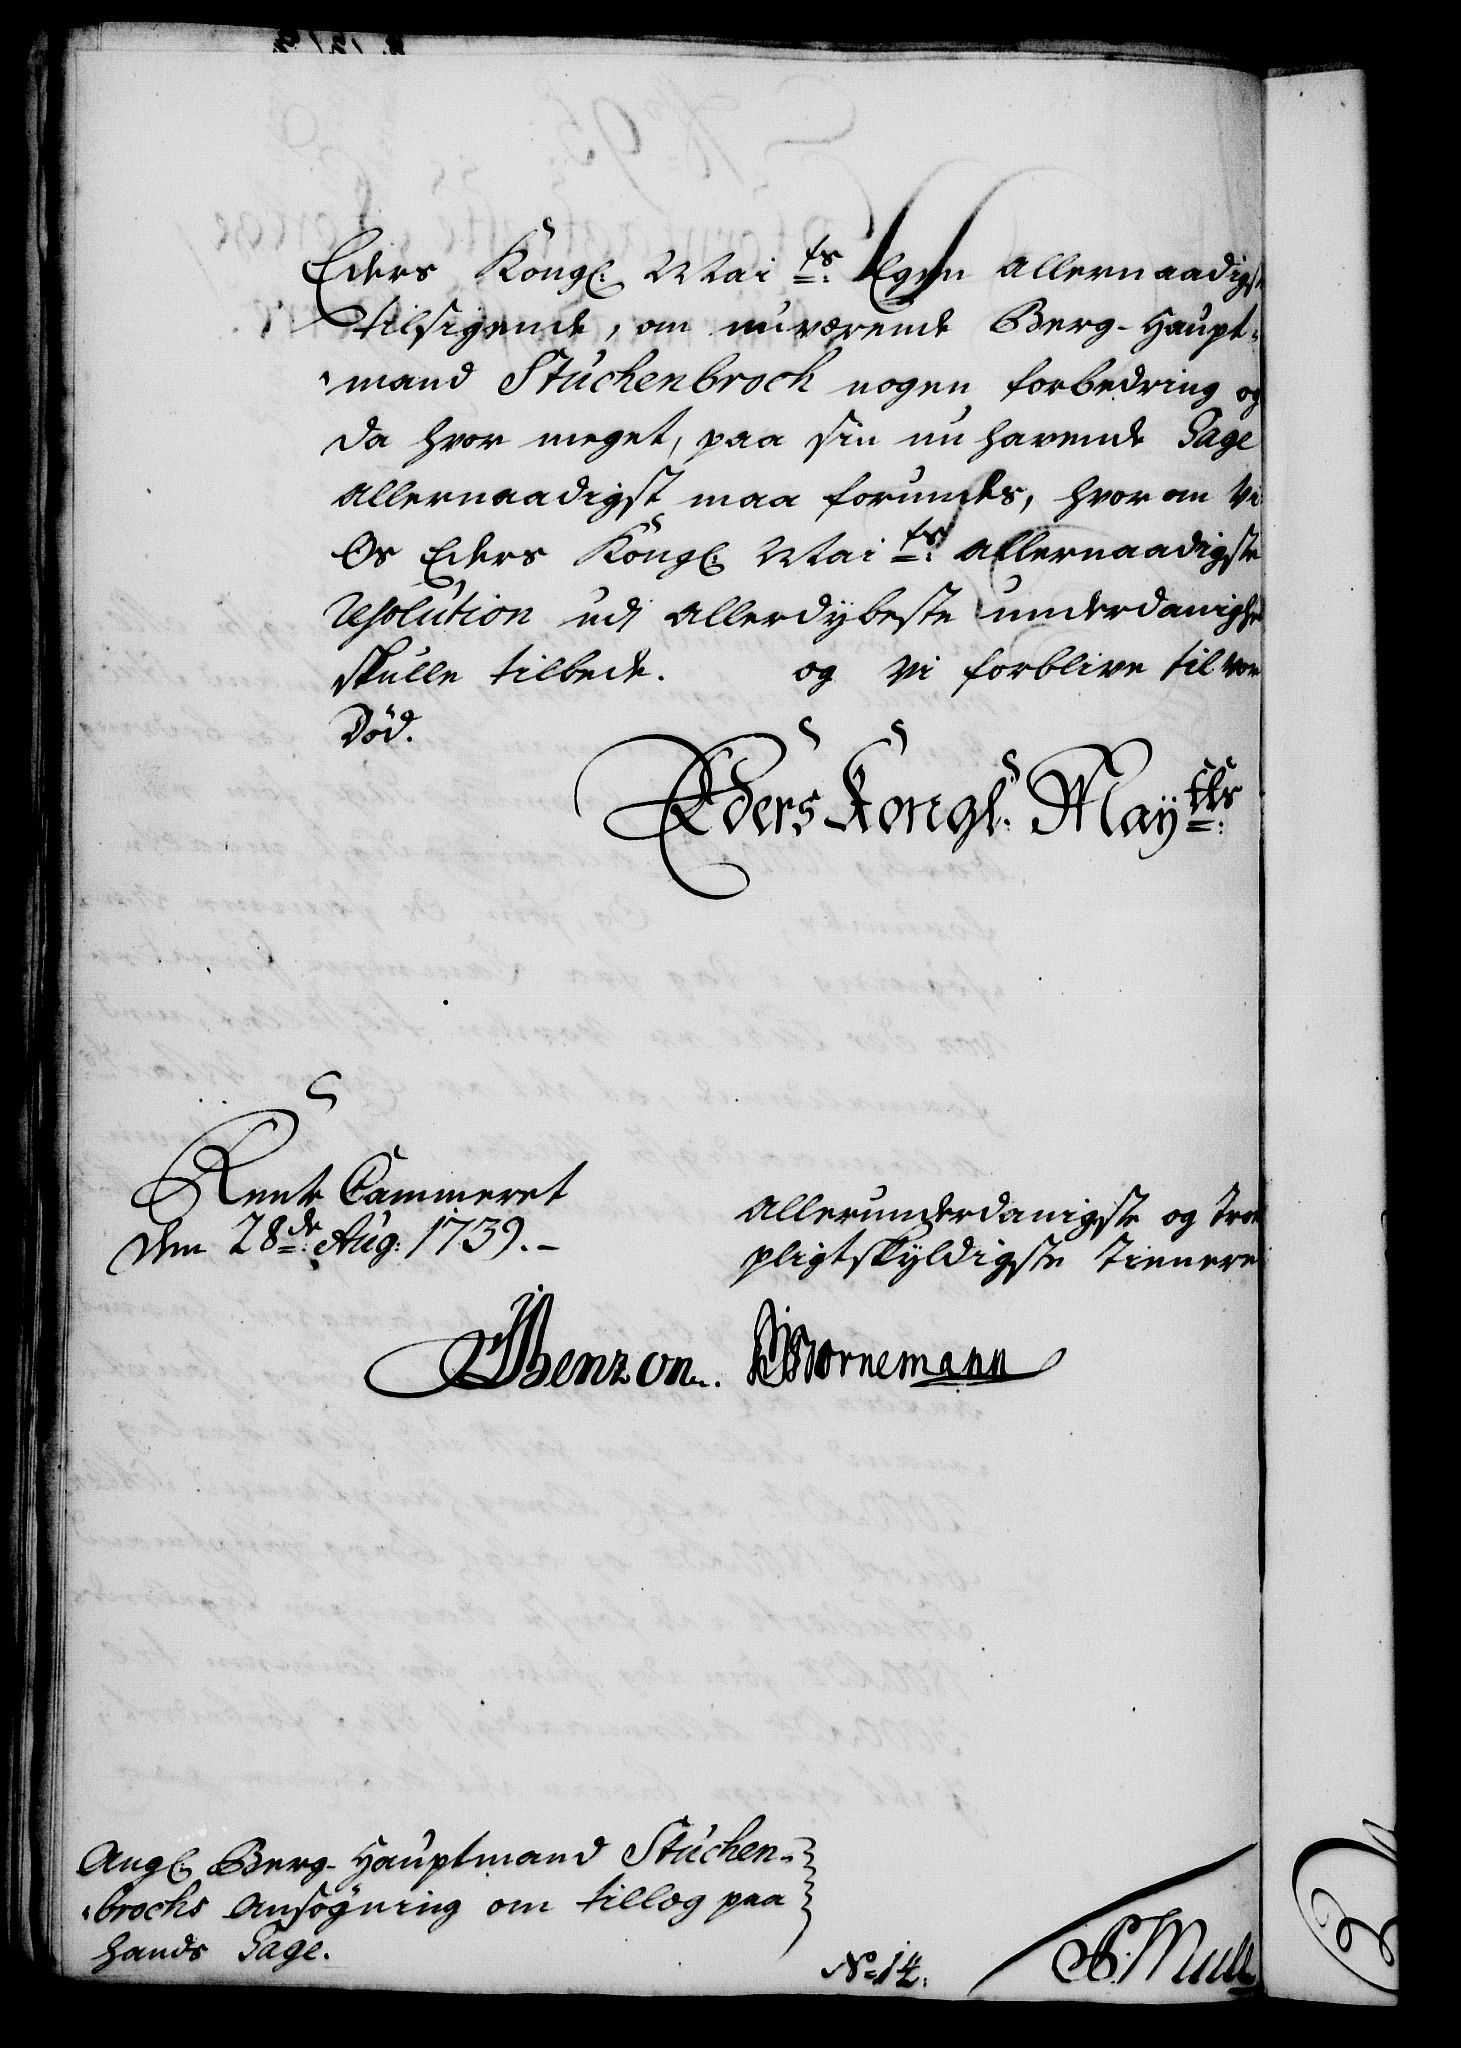 Eders Kongl: Mai ts: Egen allernaadigste
tilsigende, om nuværende Berg-Haupt-
mand Stuckenbrock nogen forbedring og
da hvor meget, paa sin nu havende Gage
allernaadigst maa forundes, hvorom Vi
Os Eders Kongl: Mai ts: allernaadigste
Resolution udj allerdybeste underdanighed
skulle tilbede. og Vi forblive til vor
Död.
Eders Kongl: Mayts:
Rente Cammeret
den 28de: Aug: 1739.-
allerunderdanigste og troe
pligtskyldigste tienere
Benzon.
Bornemann
Angl: Berg-Hauptmand Stucken-
brocks ansögning om tillæg paa
hands Gage.
No 14.
Mull